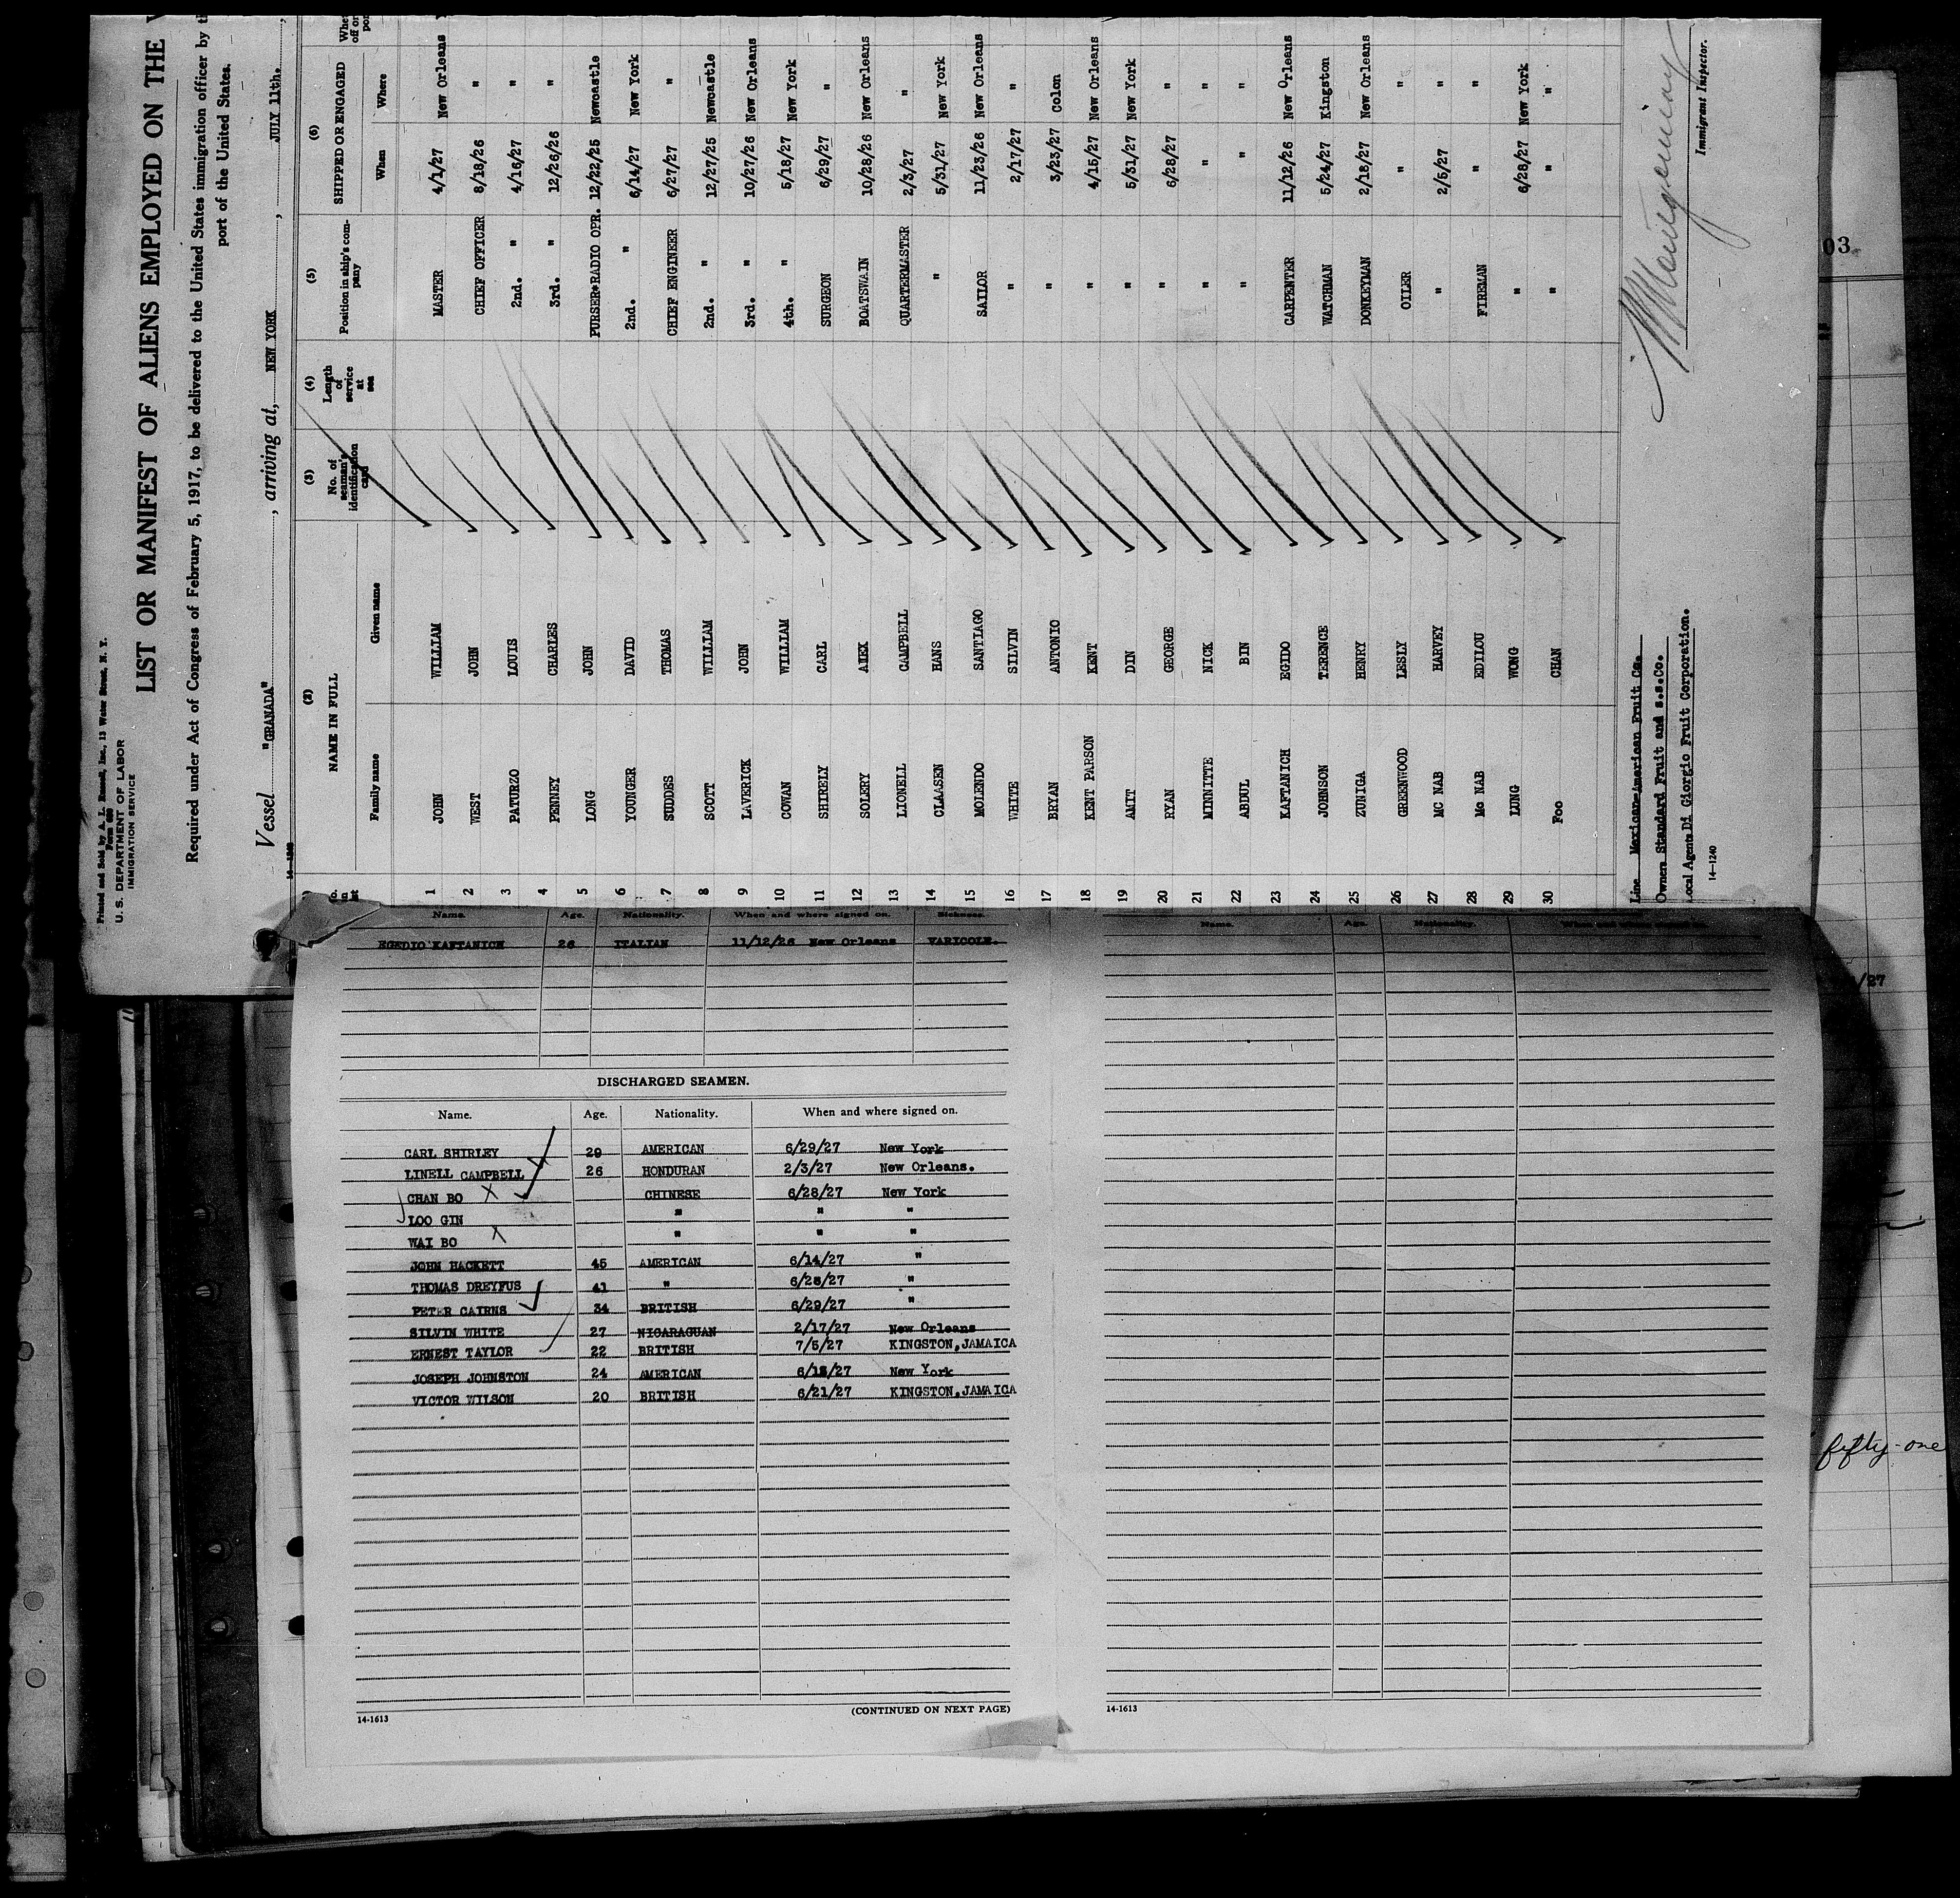 Printed and Sold by A. L. Russell, Inc., 13 Water Street, N. Y.
Form 680
U. S. DEPARTMENT OF LABOR
IMMIGRATION SERVICE
LIST OR MANIFEST OF ALIENS EMPLOYED ON THE
Required under Act of Congress of February 5, 1917, to be delivered to the United States immigration officer by
port of the United States.
Vessel "GRANADA", arriving at, NEW YORK, JULY 11th.
(2) (3) (4) (5) (6)
NAME IN FULL No. of seaman's identification card Length of service at sea Position in ship's company SHIPPED OR ENGAGED
Family name Given name When Where
1 JOHN WILLIAM MASTER 4/1/27 New Orleans
2 WEST JOHN CHIEF OFFICER 8/18/26 "
3 PATURZO LOUIS 2nd. " 4/16/27 "
4 PENNEY CHARLES 3rd. " 12/26/26 "
5 LONG JOHN PURSER&RADIO OPR. 12/22/25 Newcastle
6 YOUNGER DAVID 2nd. " 6/14/27 New York
7 SUDDES THOMAS CHIEF ENGINEER 6/27/27 "
8 SCOTT WILLIAM 2nd. " 12/27/25 Newcastle
9 LAVERICK JOHN 3rd. " 10/27/26 New Orleans
10 COWAN WILLIAM 4th. " 5/18/27 New York
11 SHIRELY CARL SURGEON 6/29/27 "
12 SOLERY ALEX BOATSWAIN 10/28/26 New Orleans
13 LIONELL CAMPBELL QUARTERMASTER 2/3/27 "
14 CLAASEN HANS " 5/31/27 New York
15 MOLENDO SANTIAGO SAILOR 11/23/26 New Orleans
16 WHITE SILVIN " 2/17/27 "
17 BRYAN ANTONIO " 3/23/27 Colon
18 KENT PARSON KENT " 4/15/27 New Orleans
19 AMIT DIN " 5/31/27 New York
20 RYAN GEORGE " 6/28/27 "
21 MINNITTE NICK " " "
22 ABDUL BIN " " "
23 KAFTANICH EGIDO CARPENTER 11/12/26 New Orleans
24 JOHNSON TERENCE WATCHMAN 5/24/27 Kingston
25 ZUNIGA HENRY DONKEYMAN 2/18/27 New Orleans
26 GREENWOOD LESLY OILER " "
27 MC NAB HARVEY " 2/5/27 "
28 Mc NAB EDILOU FIREMAN " "
29 LUNG WONG " 6/28/27 New York
30 Foo CHAN " " "
Line Mexican-American Fruit Co.
Owners Standard Fruit and S.S.Co.
Local Agents Di Giorgio Fruit Corporation.
14-1240
Immigrant Inspector.
Name. Age. Nationality. When and where signed on. Sickness.
EGEDIO KAFTANICH 26 ITALIAN 11/12/26 New Orleans VARICOLE.
DISCHARGED SEAMEN.
Name. Age. Nationality. When and where signed on.
CARL SHIRLEY 29 AMERICAN 6/29/27 New York
LINELL CAMPBELL 26 HONDURAN 2/3/27 New Orleans.
CHAN BO X CHINESE 6/28/27 New York
LOO GIN " " "
WAI BO X " " "
JOHN HACKETT 45 AMERICAN 6/14/27 "
THOMAS DREYFUS 41 " 6/28/27 "
PETER CAIRNS 34 BRITISH 6/29/27 "
SILVIN WHITE 27 NICARAGUAN 2/17/27 New Orleans
ERNEST TAYLOR 22 BRITISH 7/5/27 KINGSTON,JAMAICA
JOSEPH JOHNSTON 24 AMERICAN 6/18/27 New York
VICTOR WILSON 20 BRITISH 6/21/27 KINGSTON,JAMAICA
14-1613 (CONTINUED ON NEXT PAGE)
Name. Age. Nationality. When and where signed on.
14-1613
03
/27
fifty-one